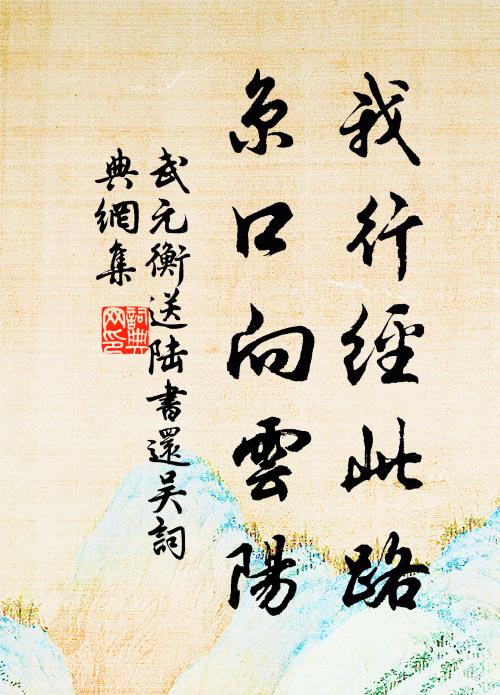 我行經此路
京口向雲陽
武元衡送陆書還吴詞
典網集
詞典网印